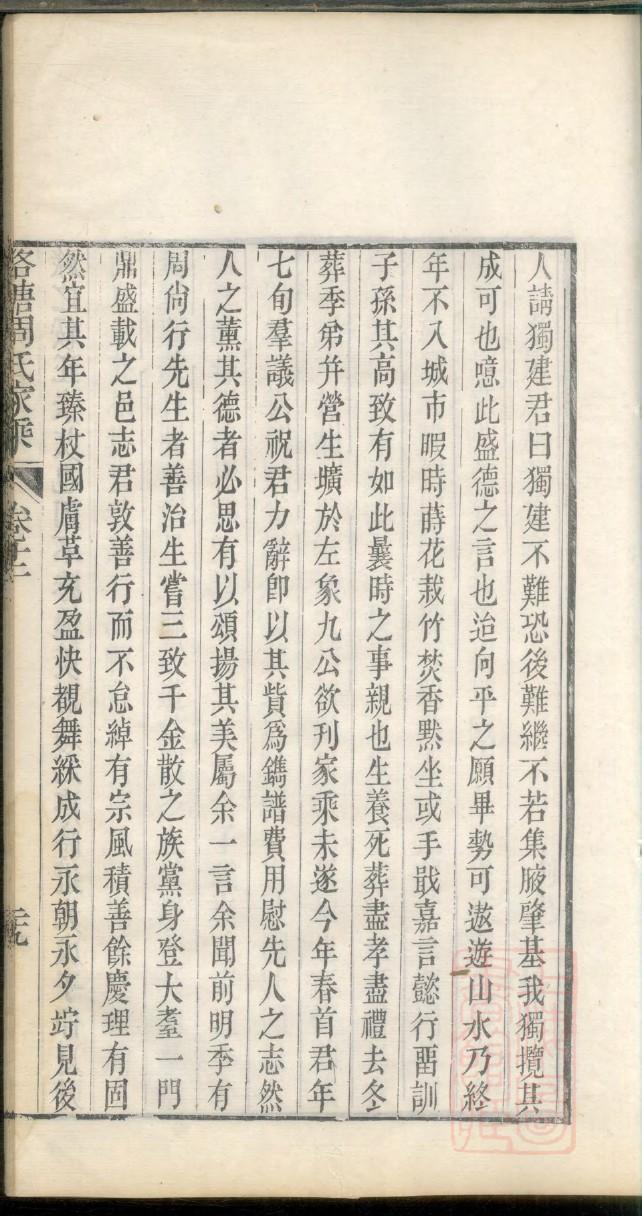 人請獨建君曰獨建不難恐後難繼不若集腋肇基我獨攬其
成可也噫此盛德之言也迨向平之願畢勢可遨遊山水乃終
年不入城市暇時蒔花栽竹焚香默坐或手戢嘉言懿行畱訓
子孫其高致有如此曩時之事親也生養死葬盡孝盡禮去冬
葬季弟并營生壙於左象九公欲刊家乘未遂今年春首君年
七旬羣議公祝君力辭卽以其貲爲鐫譜費用慰先人之志然
人之薰其德者必思有以頌揚其美屬余一言余聞前明季有
周尙行先生者善治生嘗三致千金散之族黨身登大耋一門
鼎盛載之邑志君敦善行而不怠綽有宗風積善餘慶理有固
然宜其年臻杖國膚革充盈快覩舞綵成行永朝永夕竚見後
塘周氏家乘